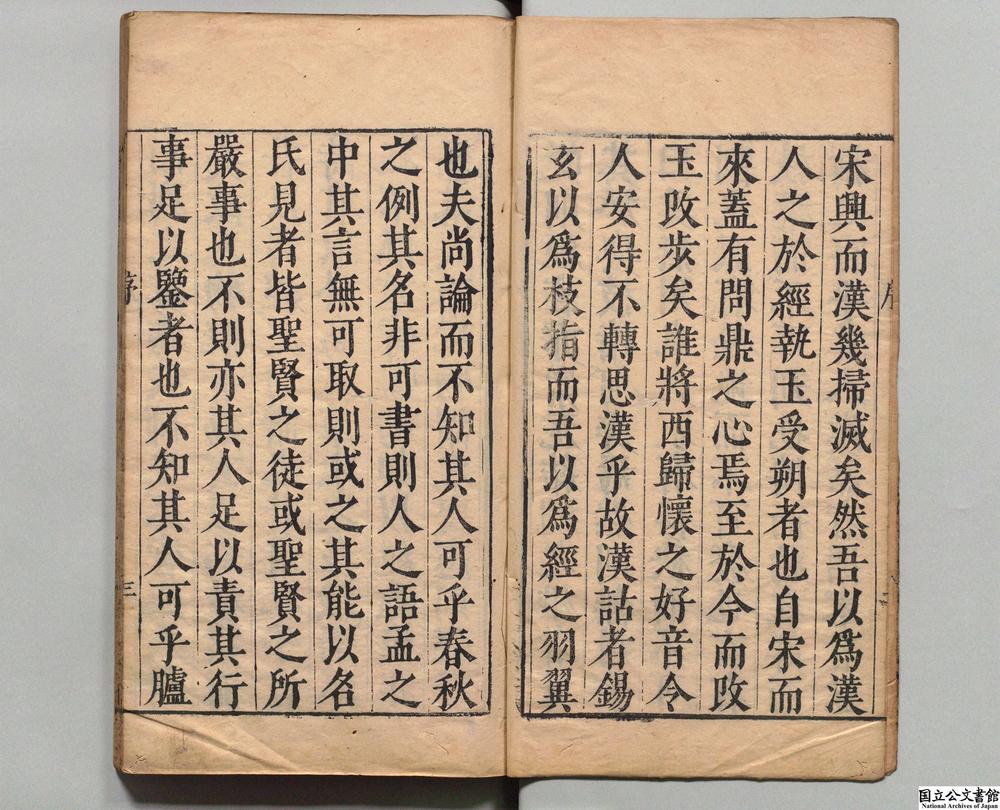 宋興而漢幾掃滅矣然吾以爲漢
人之於經執玉受朔者也自宋而
來蓋有問鼎之心焉至於今而攺
玉攺步矣誰將西歸懷之好音令
人安得不轉思漢乎故漢詁者錫
玄以爲枝指而吾以爲經之羽翼
也夫尚論而不知其人可乎春秋
之例其名非可書則人之語孟之
中其言無可取則或之其能以名
氏見者皆聖賢之徒或聖賢之所
嚴事也不則亦其人足以責其行
事足以鑒者也不知其人可乎臚
序
三
国立公文書館
National Archives of Japan